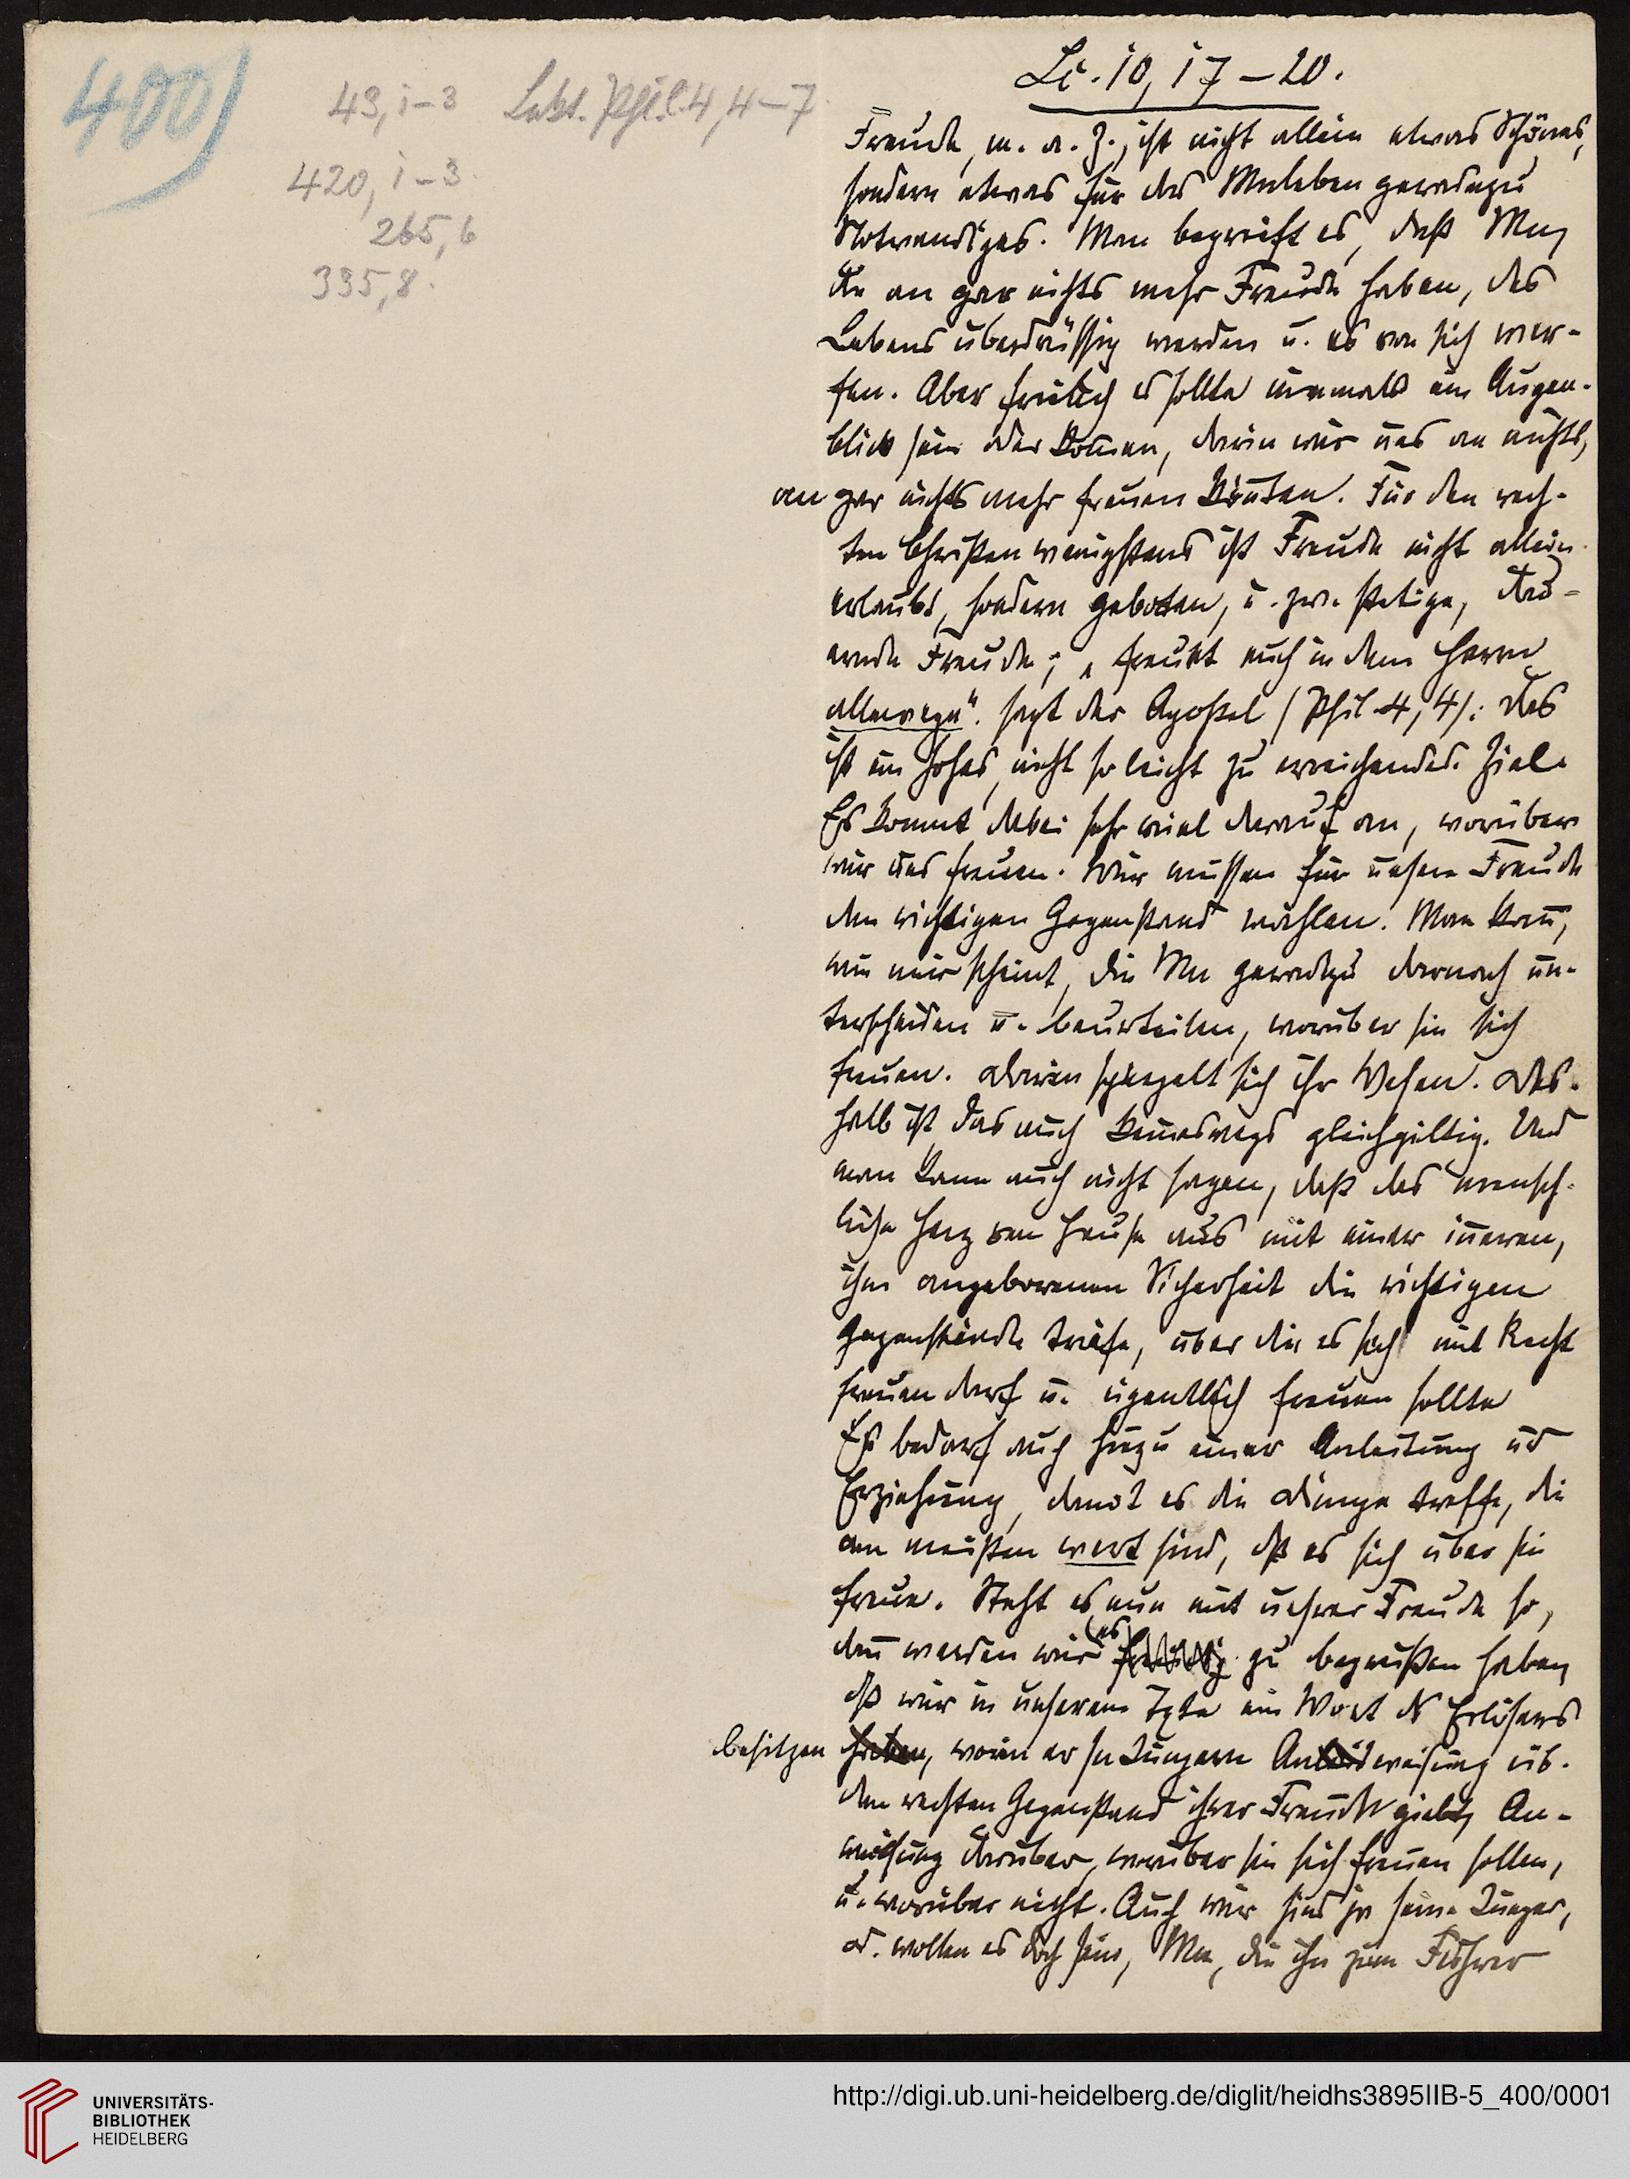 400)
43, 1-3 Lekt. Phil. 4, 4-7.
420, 1-3.
265, 6
335, 8.
Lc. 10, 17-20.
Freude, m. a. Z., ist nicht allein etwas Schönes,
sondern etwas für das Mnleben geradezu
Notwendiges. Man begreift es, daß Mn,
die an gar nichts mehr Freude haben, des
Lebens überdrüssig werden u. es von sich wer-
fen. Aber freilich es sollte niemals ein Augen-
blick sein oder kommen, darin wir uns an nichts,
an gar nichts mehr freuen könnten. Für den rech-
ten Christen wenigstens ist Freude nicht allein
erlaubt, sondern geboten, u. zw. stetige, dau-
ernde Freude; „freuet euch in dem Herrn
allewege". sagt der Apostel (Phil. 4, 4): das
ist ein hohes, nicht so leicht zu erreichendes Ziel.
Es kommt dabei sehr viel darauf an, worüber
wir uns freuen. Wir müssen für unsere Freude
den richtigen Gegenstand wählen. Man kann,
wie mir scheint, die Mn geradezu darnach un-
terscheiden u. beurteilen, worüber sie sich
freuen. Darin spiegelt sich ihr Wesen. Des-
halb ist das auch keineswegs gleichgiltig. Und
man kann auch nicht sagen, daß das mensch-
liche Herz von Hause aus mit einer inneren,
ihm angeborenen Sicherheit die richtigen
Gegenstände träfe, über die es sich mit Recht
freuen darf u. eigentlich freuen sollte
Es bedarf auch hiezu einer Anleitung ud
Erziehung, damit es die Dinge treffe, die
am meisten wert sind, dß es sich über sie
freue. Steht es nun mit unserer Freude so,
dann werden wir (es) zu begrüßen haben,
dß wir in unserem Txte ein Wort ds Erlösers
besitzen haben, worin er sn Jüngern Anweisung üb.
den rechten Gegenstand ihrer Freude giebt, An-
weisung darüber, worüber sie sich freuen sollen,
u. worüber nicht. Auch wir sind ja seine Jünger,
od. wollen es doch sein, Mn, die ihn zum Führer
UNIVERSITÄTS-
BIBLIOTHEK
HEIDELBERG
http://digi.ub.uni-heidelberg.de/diglit/heidhs3895IIB-5_400/0001